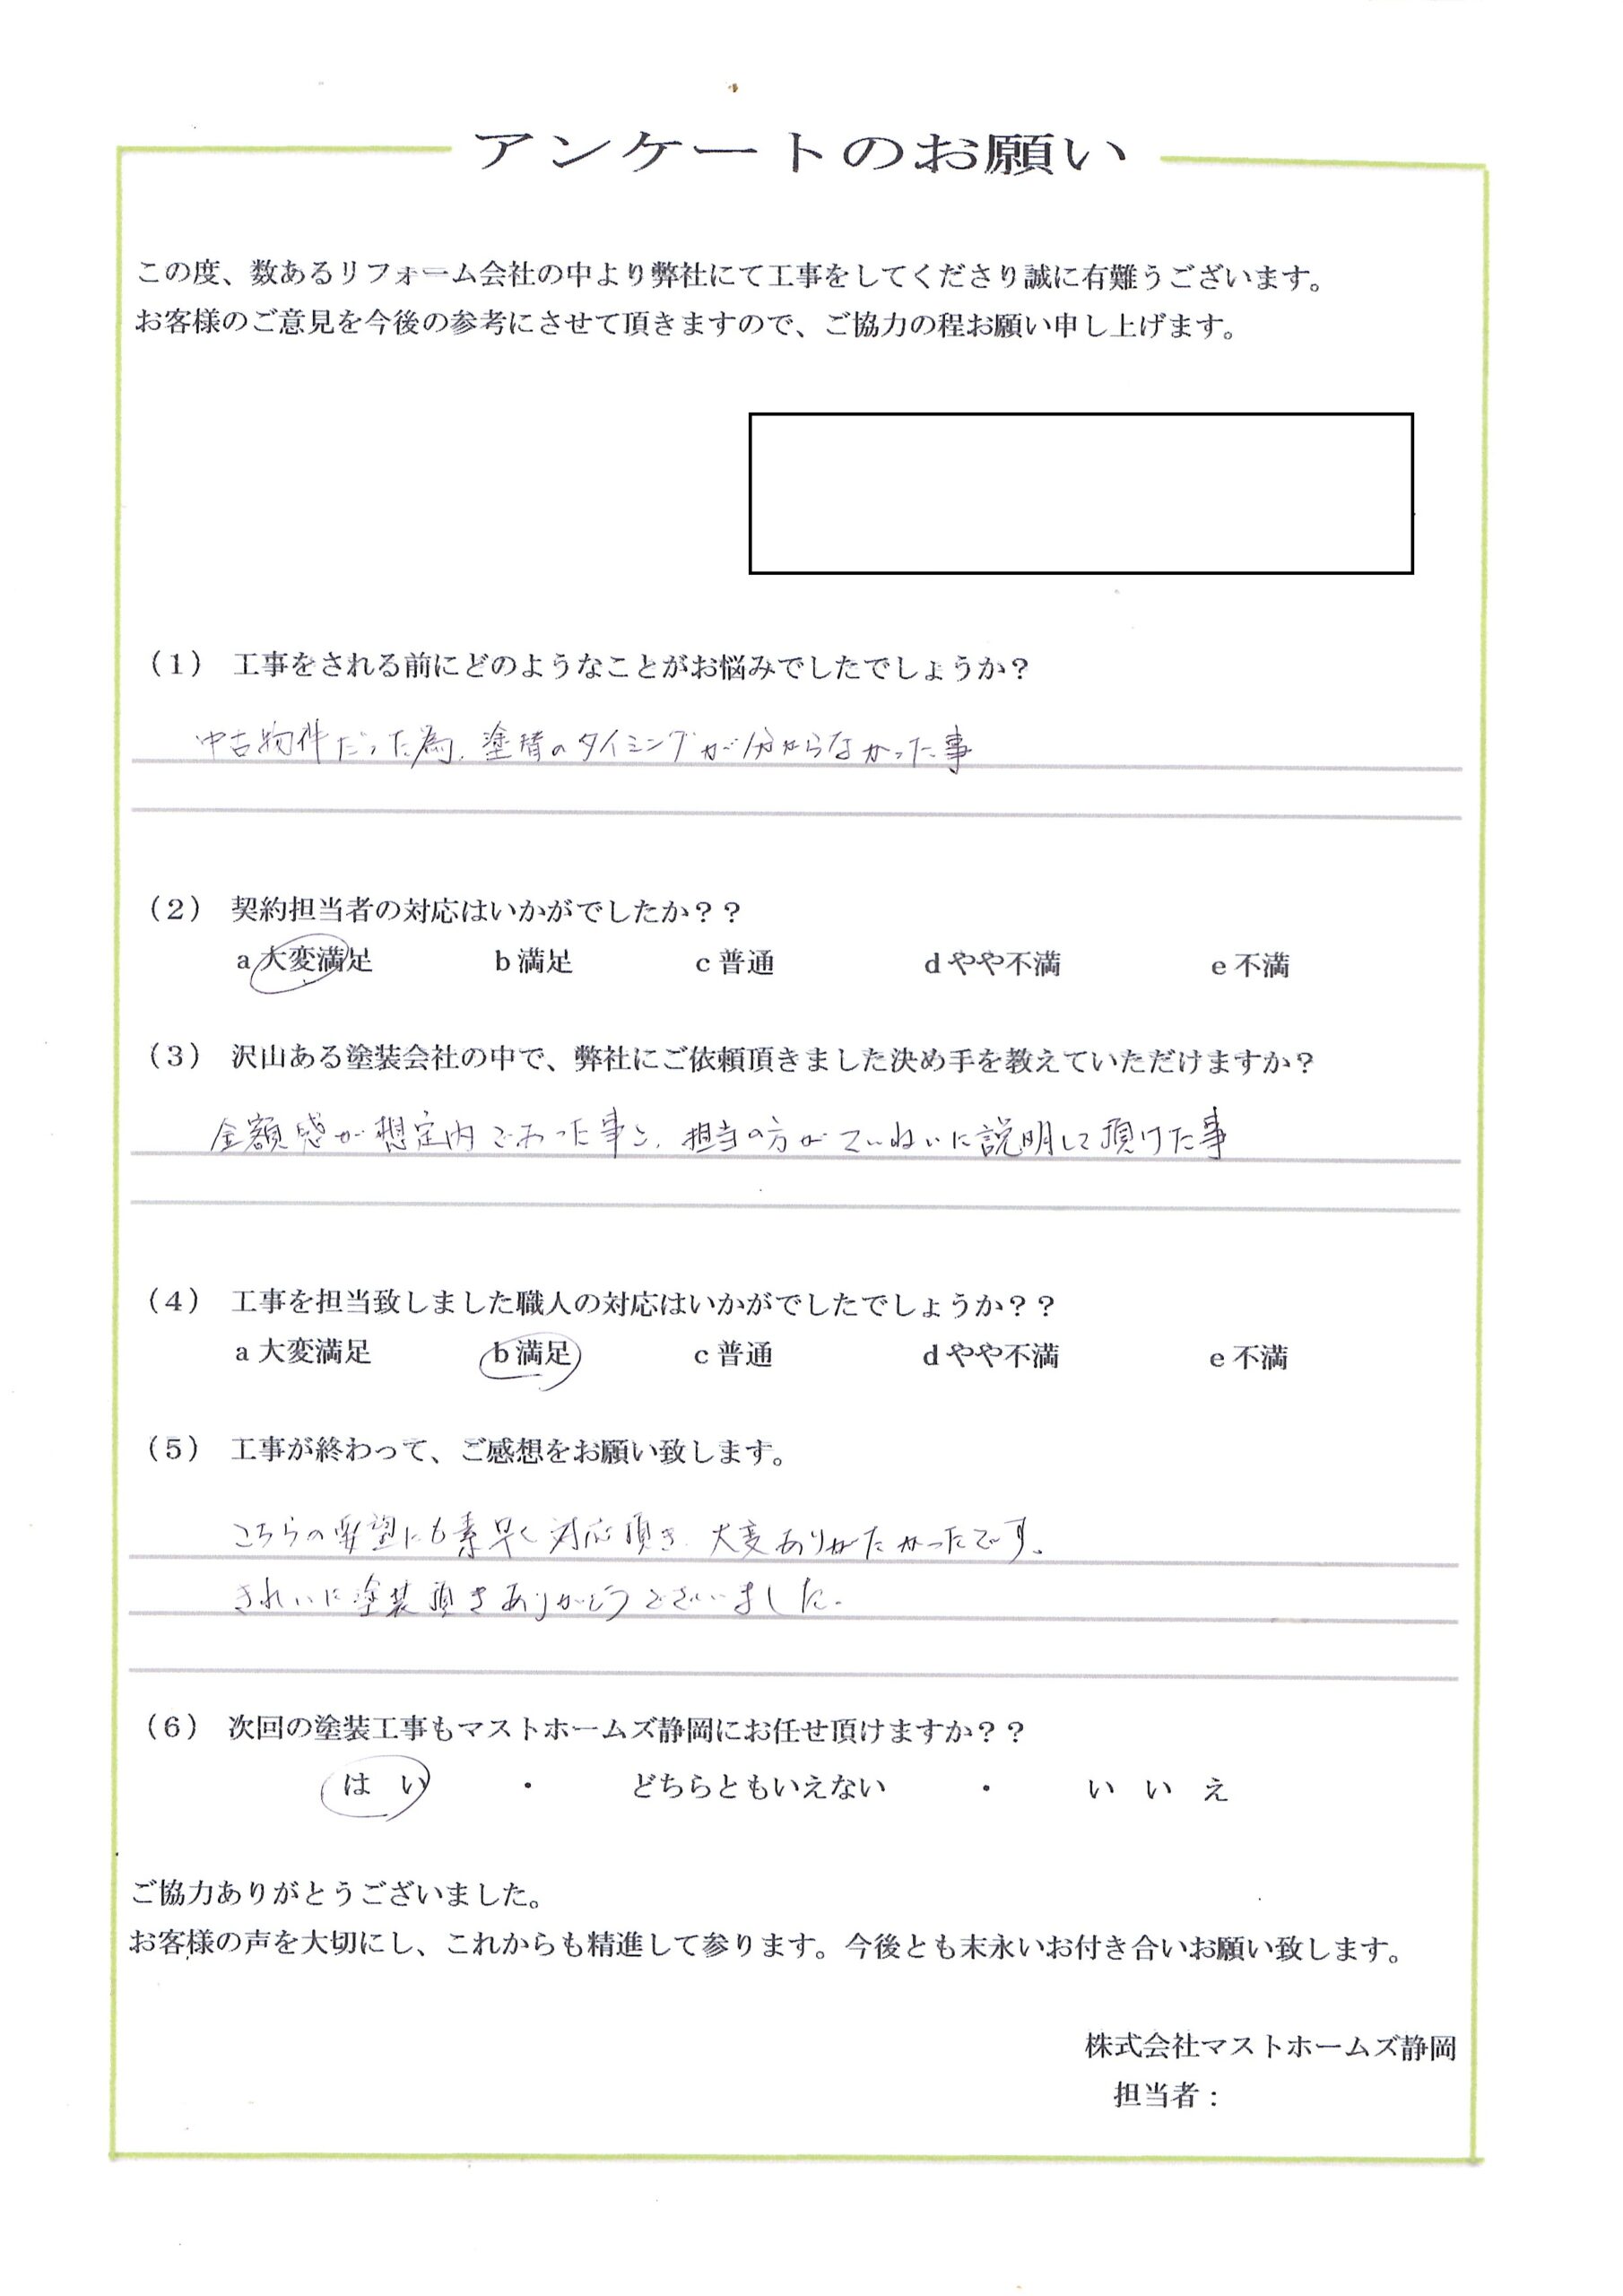 アンケートのお願い
この度、数あるリフォーム会社の中より弊社にて工事をしてくださり誠に有難うございます。
お客様のご意見を今後の参考にさせて頂きますので、ご協力の程お願い申し上げます。
(1) 工事をされる前にどのようなことがお悩みでしたでしょうか?
中古物件だった為、塗替のタイミングが分からなかった事
(2) 契約担当者の対応はいかがでしたか??
a 大変満足 b 満足 c 普通 d やや不満 e 不満
(3) 沢山ある塗装会社の中で、弊社にご依頼頂きました決め手を教えていただけますか?
金額感が想定内であった事と、担当の方がていねいに説明して頂けた事
(4) 工事を担当致しました職人の対応はいかがでしたでしょうか??
a 大変満足 b 満足 c 普通 d やや不満 e 不満
(5) 工事が終わって、ご感想をお願い致します。
こちらの要望にも素早く対応頂き、大変ありがたかったです。
きれいに塗装頂きありがとうございました。
(6) 次回の塗装工事もマストホームズ静岡にお任せ頂けますか??
はい ・ どちらともいえない ・ いいえ
ご協力ありがとうございました。
お客様の声を大切にし、これからも精進して参ります。今後とも末永いお付き合いお願い致します。
株式会社マストホームズ静岡
担当者: